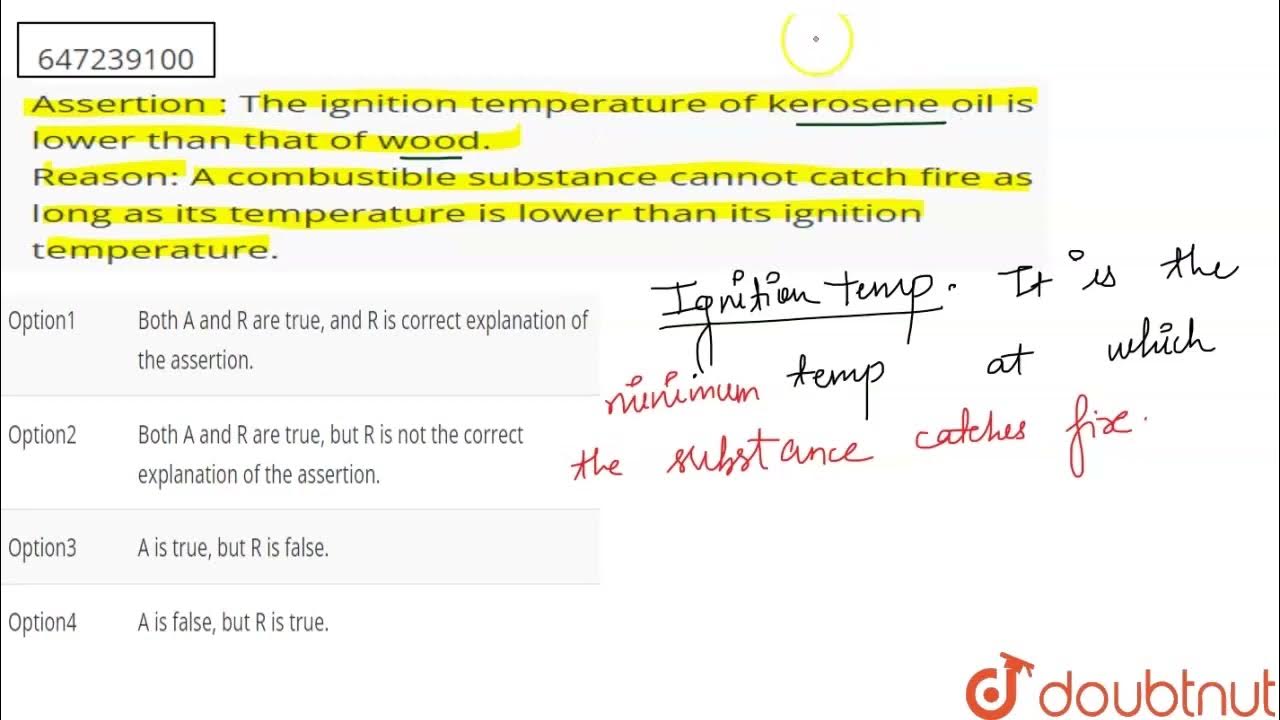 647239100
Assertion : The ignition temperature of kerosene oil is
lower than that of wood.
Reason: A combustible substance cannot catch fire as
long as its temperature is lower than its ignition
temperature.
Ignition temp. It is the
minimum temp at which
the substance catches fire.
Option1 Both A and R are true, and R is correct explanation of
the assertion.
Option2 Both A and R are true, but R is not the correct
explanation of the assertion.
Option3 A is true, but R is false.
Option4 A is false, but R is true.
doubtnut